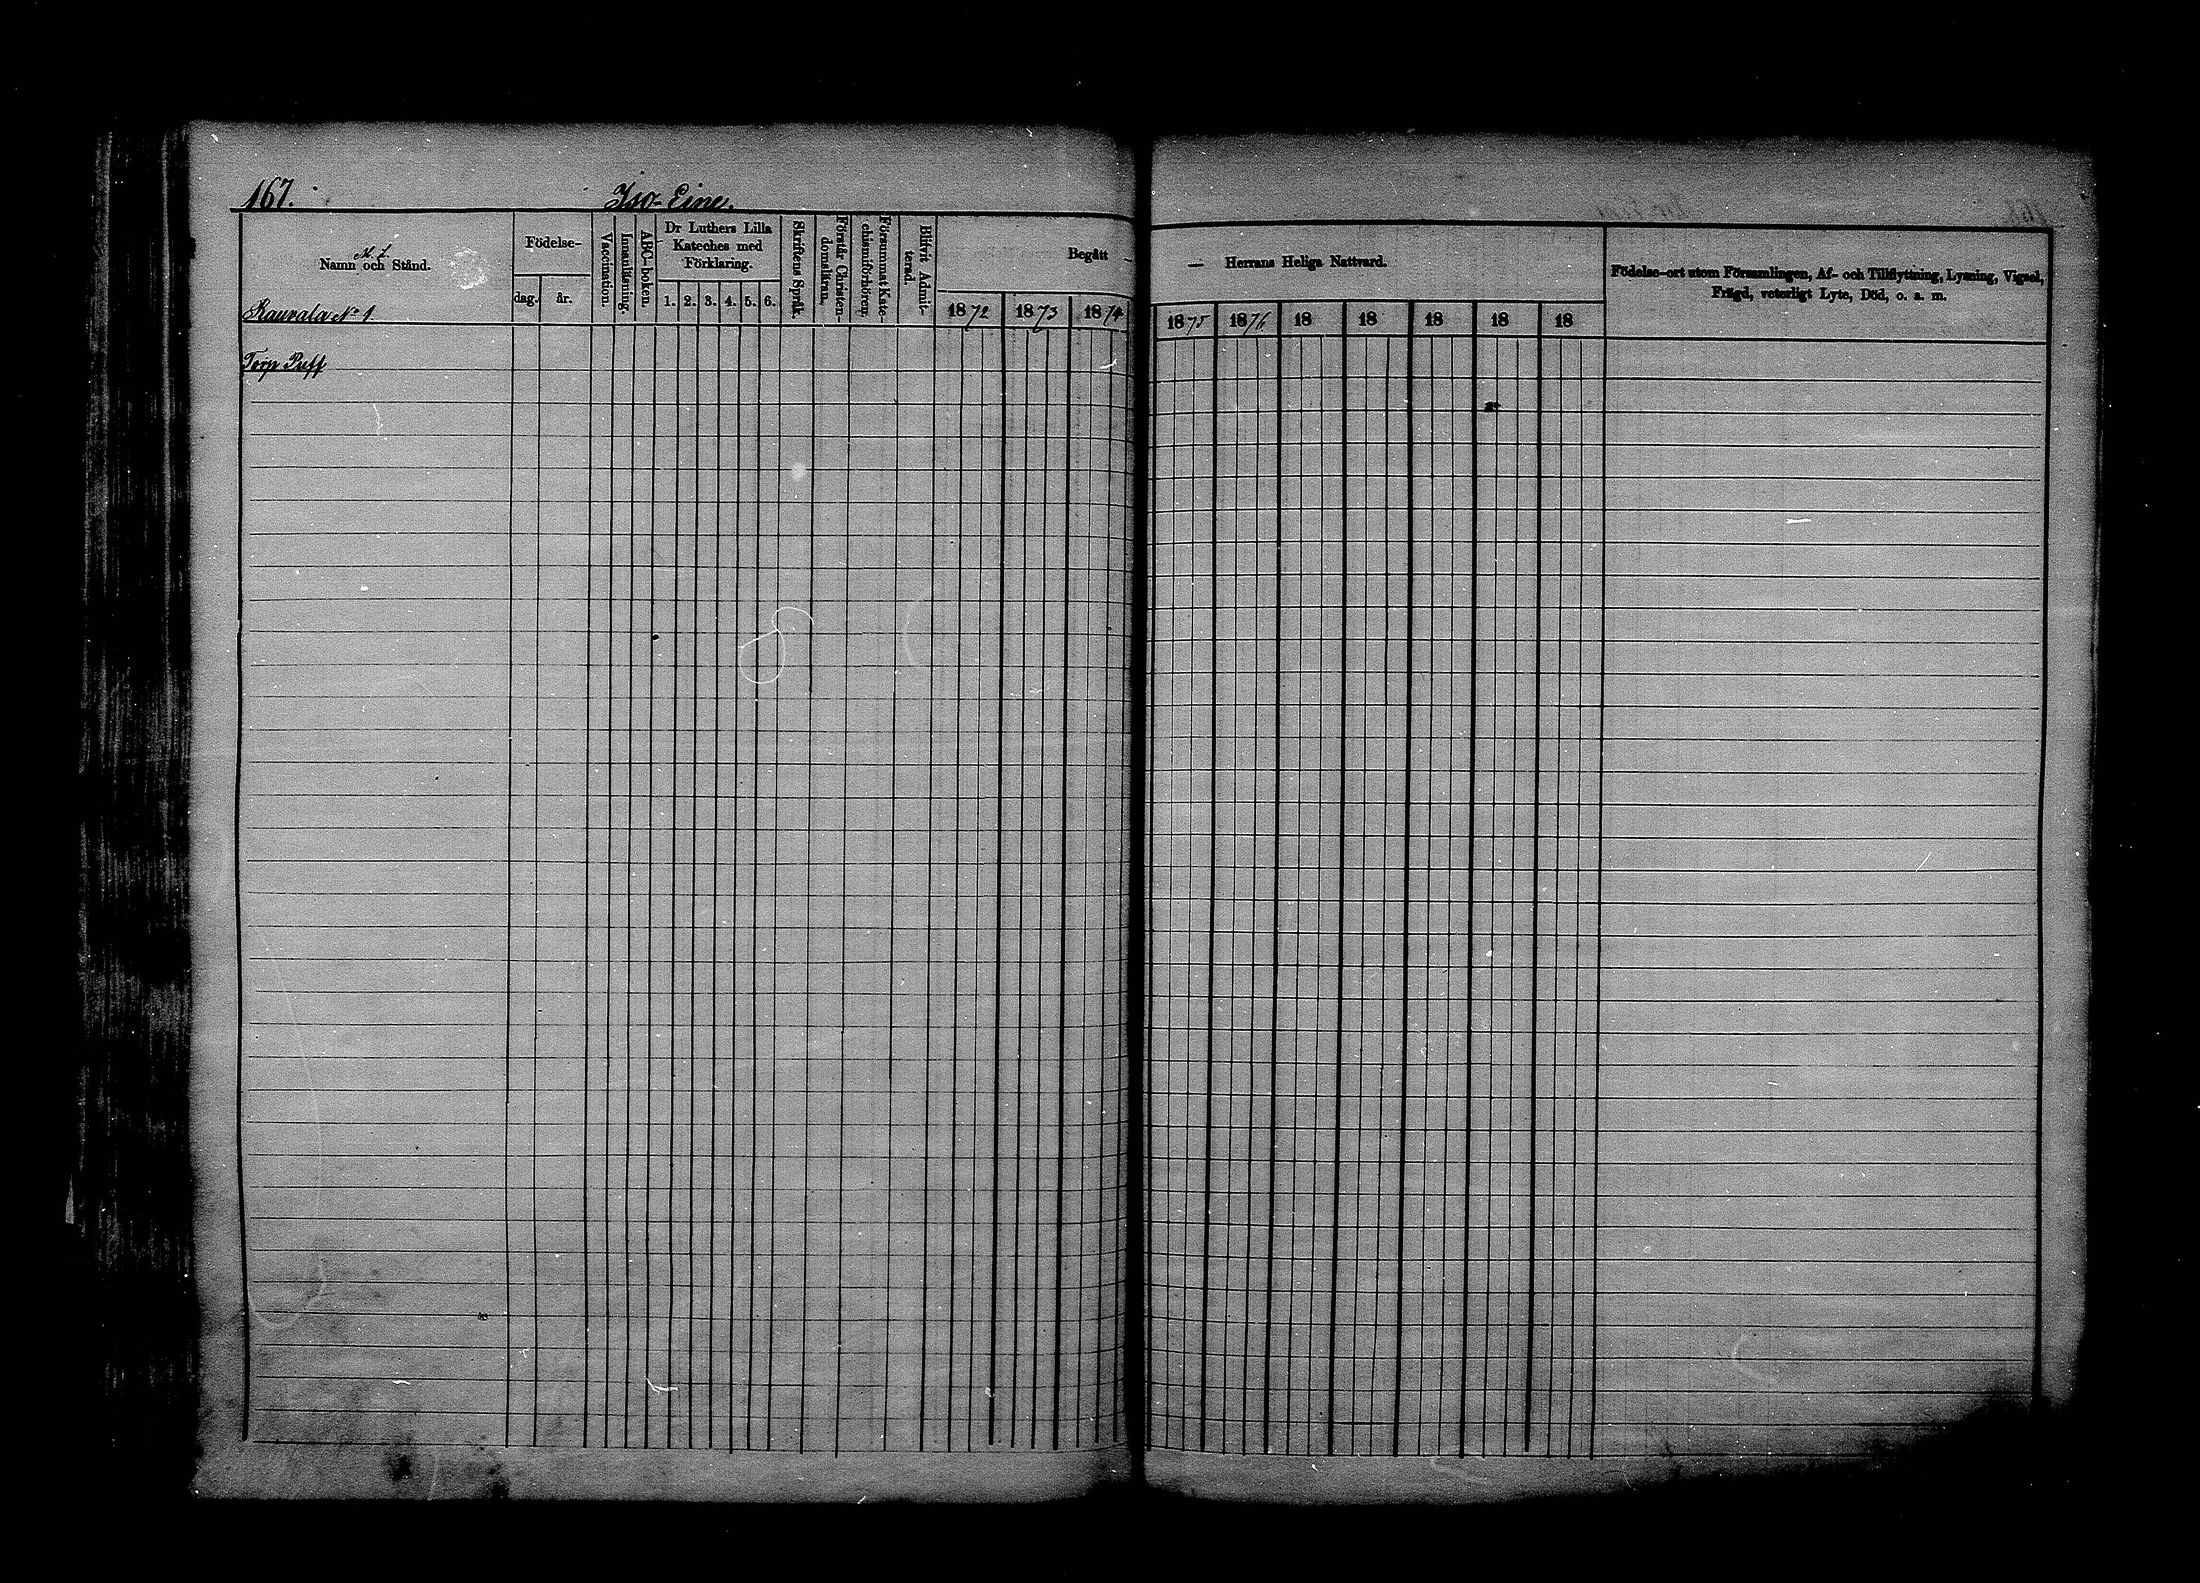 167.
Iso-Eine.
Namn och Stånd.
Födelse-
dag.
år.
Vaccination.
Innanläsning.
ABC-boken.
Dr Luthers Lilla
Kateches med
Förklaring.
1. 2. 3. 4. 5. 6.
Skriftens Språk.
Förstår Christen-
domsläran.
Försummat Kate-
chismiförhören.
Blifvit Admit-
terad.
Begått —
— Herrans Heliga Nattvard.
1872 1873 1874 1875 1876 18 18 18 18 18
Födelse-ort utom Församlingen, Af- och Tillflyttning, Lysning, Vigsel,
Frägd, veterligt Lyte, Död, o. a. m.
Raurala No 1
Torp Puff